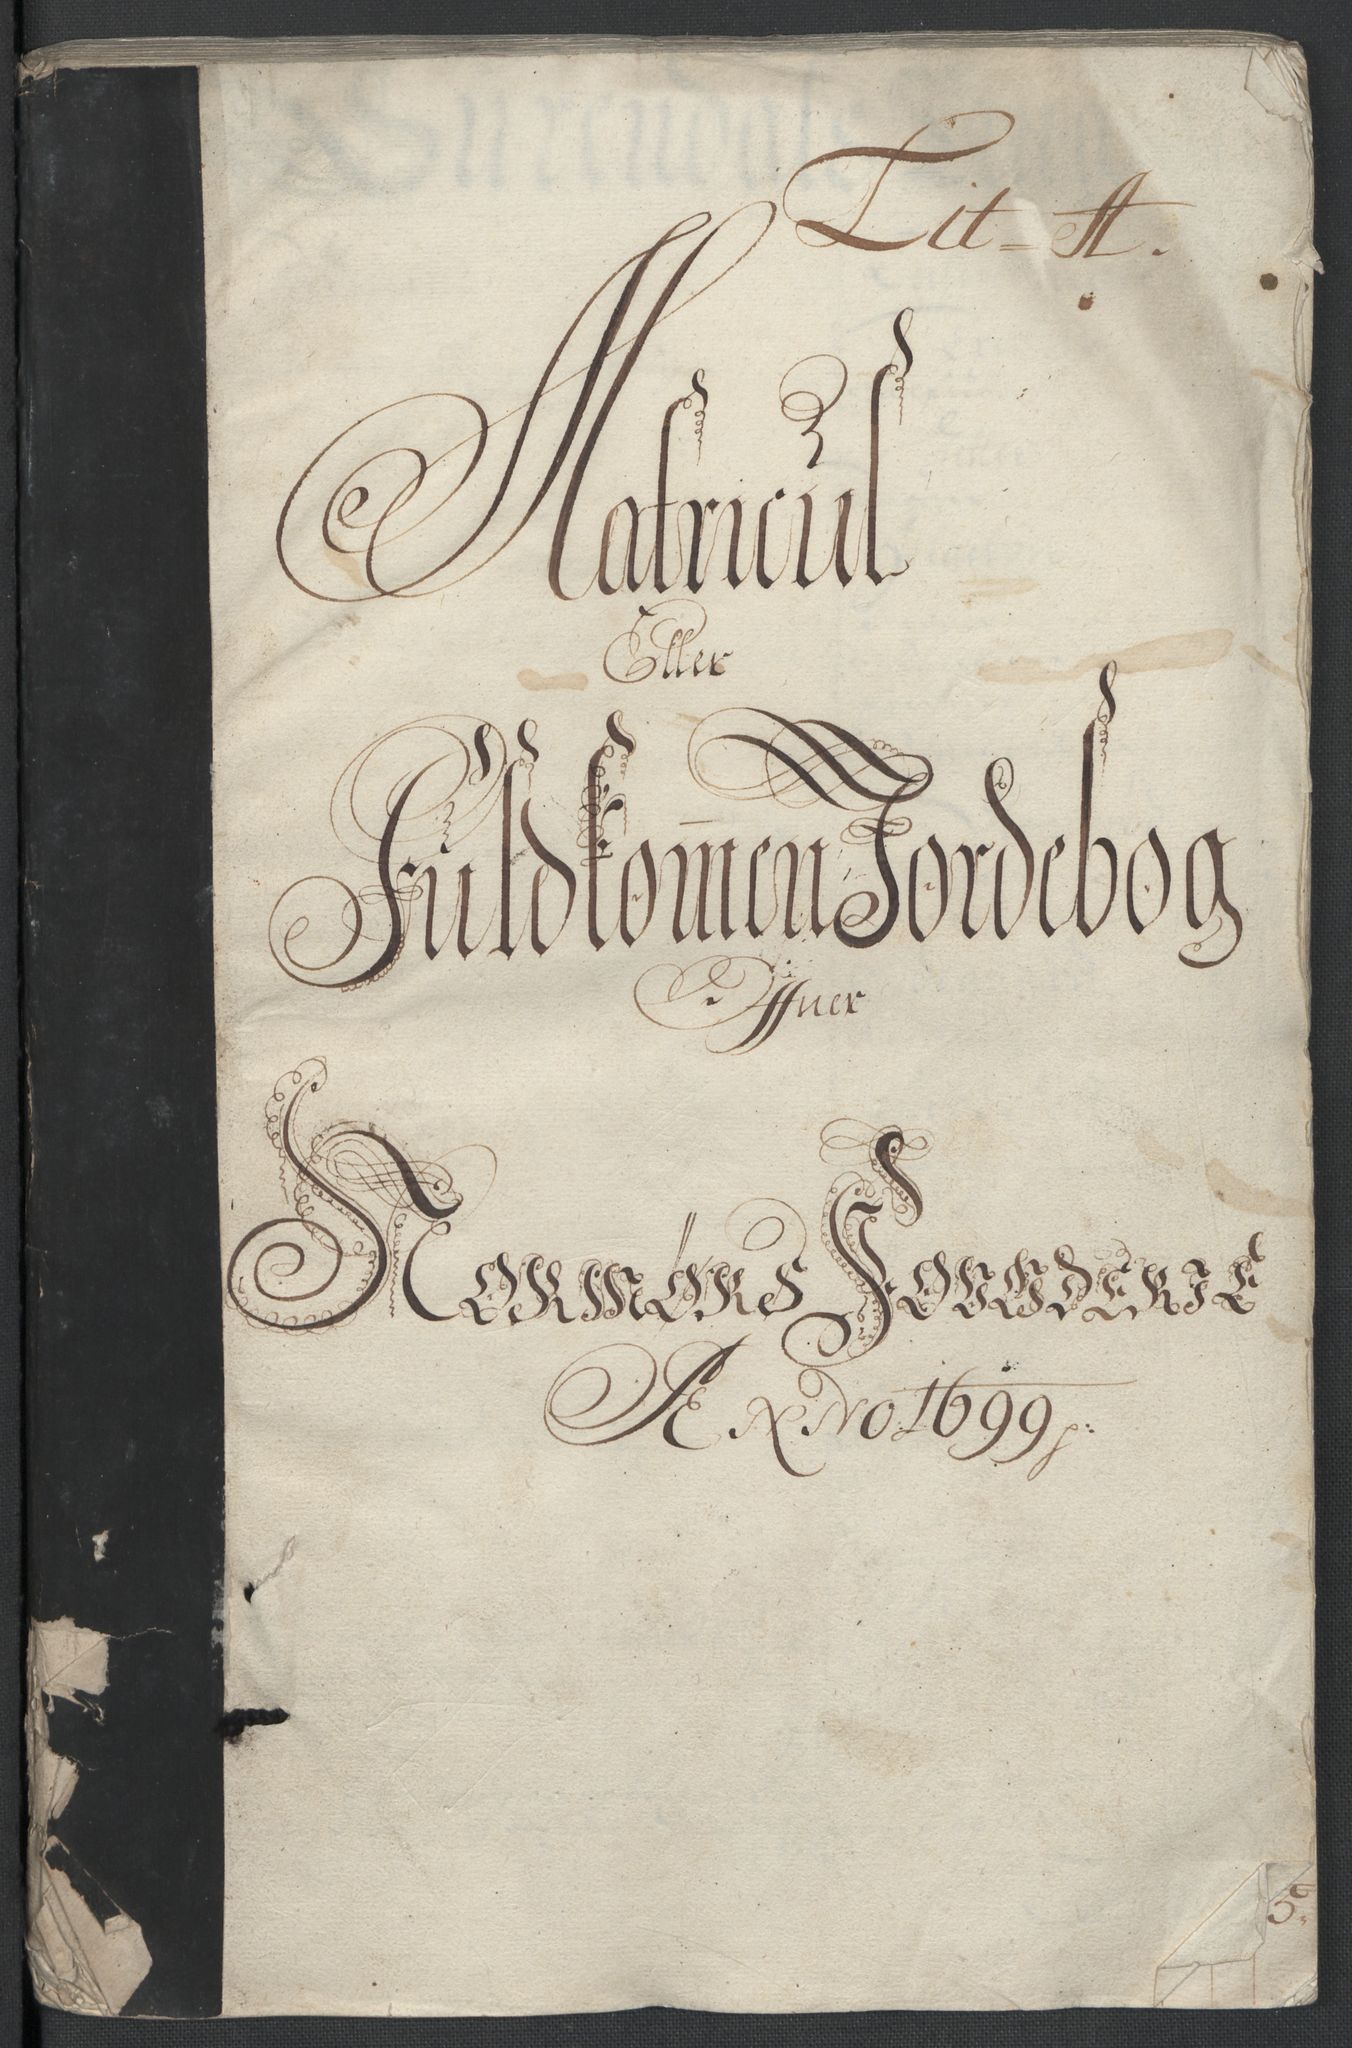 Lit = A.
Matricul
Eller
Fuldkom̅en Jordebog
Offuer
Normørs Fougderie
Anno 1699